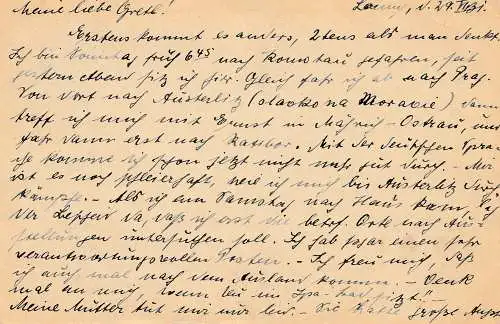 Meine liebe Gretl! Laun, d. 24. VI 31.
Erstens kommt es anders, 2tens als man denkt.
Ich bin Sonntag früh 6 45 nach Komotau gefahren, seit
gestern Abend sitz ich hier. Gleich fahr ich ab nach Prag.
Von dort nach Austerlitz (Slavkov na Moravě) dann
treff ich mich mit Ernst in Mährisch-Ostrau, und
fahr dann erst nach Ratibor. Mit der deutschen Spra-
che komme ich schon jetzt nicht mehr gut durch. Mir
ist es noch schleierhaft, wie ich mich bis Austerlitz durch-
kämpfe. - Als ich am Samstag nach Haus kam,
der da, daß ich erst die betr. Orte nach Aus-
stellungen untersuchen soll. Ich hab sogar einen sehr
verantwortungsvollen Posten. - Ich freu mich, daß
ich auch mal nach dem Ausland komme. - Denk
mal an mich, wenn Du im sitzt! -
Meine Mutter tut mir nur leid. - Die hatte große Angst